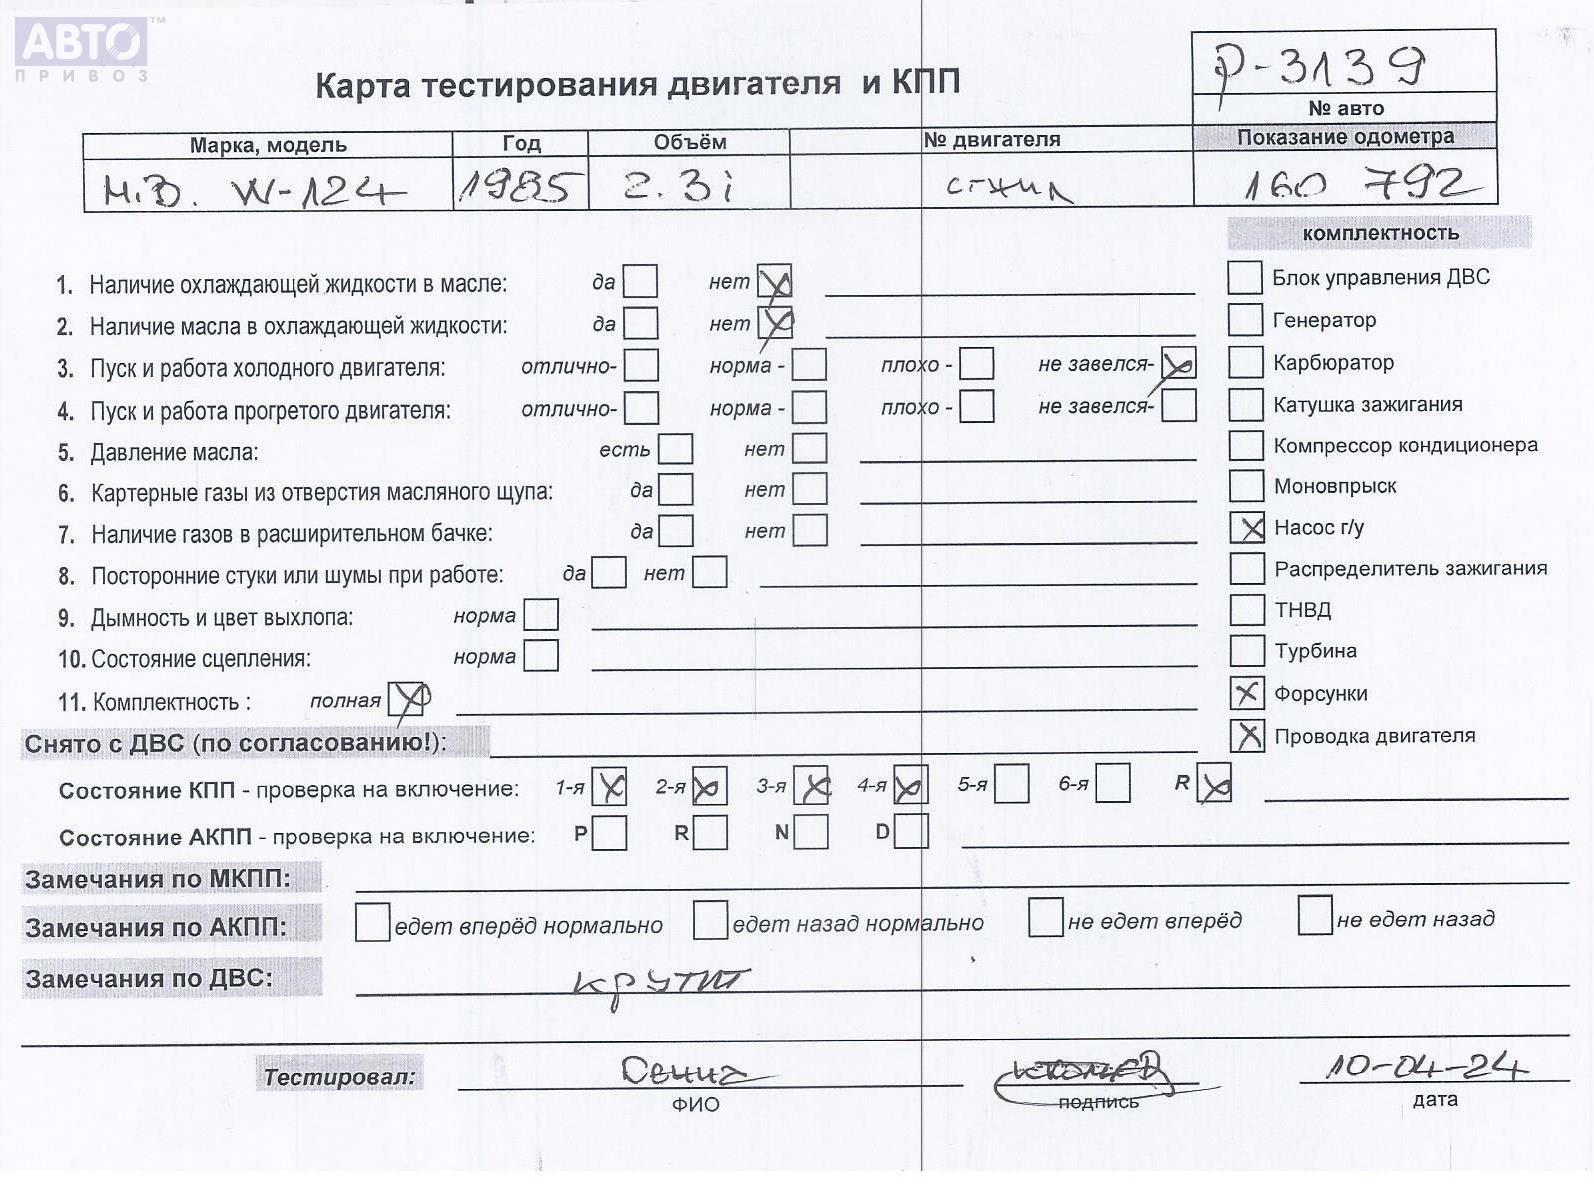 АВТО™
ПРИВОЗ
Р-3139
Карта тестирования двигателя и КПП
№ авто
Марка, модель Год Объём № двигателя Показание одометра
М.В. W-124 1985 2.3i 160 792
комплектность
1. Наличие охлаждающей жидкости в масле: да нет
Блок управления ДВС
2. Наличие масла в охлаждающей жидкости: да нет
Генератор
3. Пуск и работа холодного двигателя: отлично- норма - плохо - не завелся-
Карбюратор
4. Пуск и работа прогретого двигателя: отлично- норма - плохо - не завелся-
Катушка зажигания
5. Давление масла: есть нет
Компрессор кондиционера
6. Картерные газы из отверстия масляного щупа: да нет
Моновпрыск
7. Наличие газов в расширительном бачке: да нет
Насос г/у
8. Посторонние стуки или шумы при работе: да нет
Распределитель зажигания
9. Дымность и цвет выхлопа: норма
ТНВД
10. Состояние сцепления: норма
Турбина
11. Комплектность : полная
Форсунки
Снято с ДВС (по согласованию!):
Проводка двигателя
Состояние КПП - проверка на включение: 1-я 2-я 3-я 4-я 5-я 6-я R
Состояние АКПП - проверка на включение: P R N D
Замечания по МКПП:
Замечания по АКПП: едет вперёд нормально едет назад нормально не едет вперёд не едет назад
Замечания по ДВС: крутит
Тестировал: 10-04-24
ФИО подпись дата